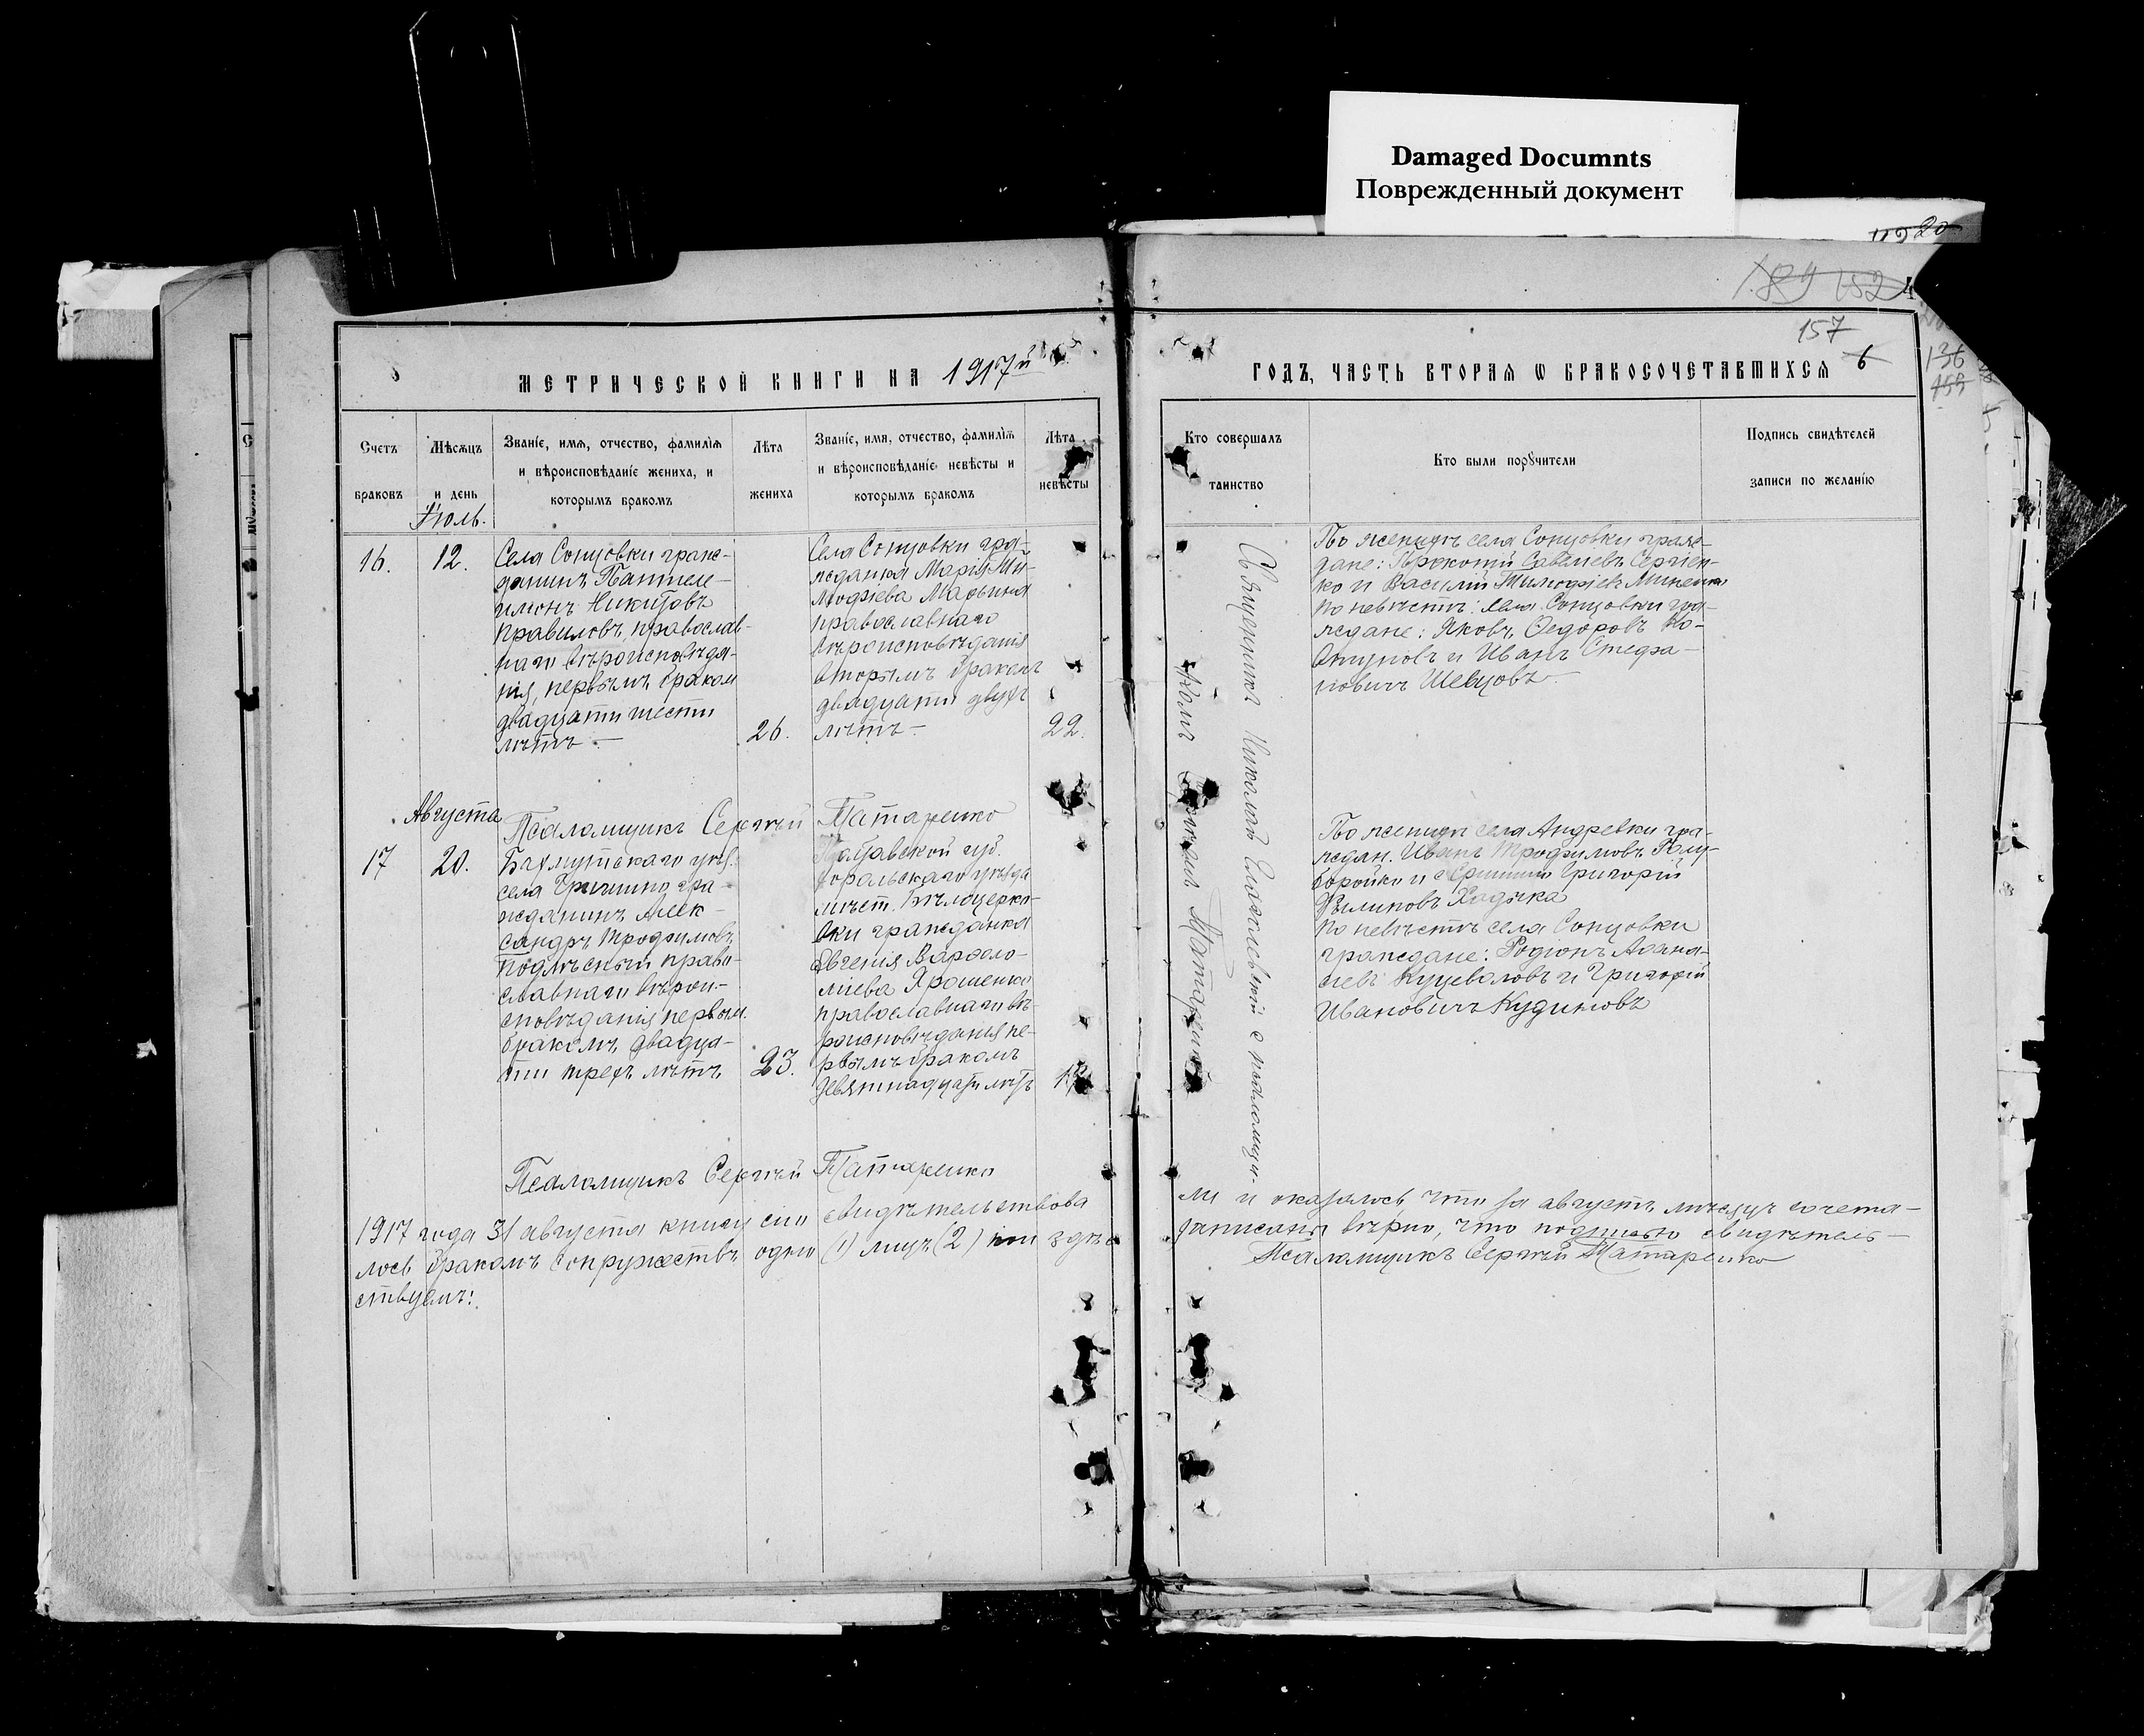 Damaged Documnts
Поврежденный документ
157
6
136
МЕТРИЧЕСКОЙ КНИГИ НА 1917й
ГОДЪ, ЧАСТЬ ВТОРАЯ Ѡ БРАКОСОЧЕТАВШИХСЯ
Счетъ браковъ
Мѣсяцъ и день
Званіе, имя, отчество, фамилія и вѣроисповѣданіе жениха, и которымъ бракомъ
Лѣта жениха
Званіе, имя, отчество, фамилія и вѣроисповѣданіе невѣсты и которымъ бракомъ
Лѣта невѣсты
Кто совершалъ таинство
Кто были поручители
Подпись свидѣтелей записи по желанію
Іюль.
16.
12.
Села Сонцовки граж-
данинъ Пантеле-
имонъ Никитовъ
Правиловъ, православ-
наго вѣроисповѣда-
нія, первымъ бракомъ
двадцати шести
лѣтъ.—
26.
Села Сонцовки гра-
жданка Марія Ти-
мофіева
православнаго
вѣроисповѣданія
вторымъ бракомъ
двадцати двухъ
лѣтъ—
22.
По женихѣ села Сонцовки граж-
дане: Прокопій Савельевъ Сергіен-
ко и Василій Тимофіевъ Миненко
по невѣстѣ: села Сонцовки гра-
ждане: Яковъ Ѳедоровъ Ко-
втуновъ и Иванъ Стефа-
новичъ Шевцовъ—
Псаломщикъ Сергѣй Татаренко
Августа
17
20.
Бахмутскаго уѣз.
села Гришино гра-
жданинъ Алек-
сандръ Трофимовъ
Подлѣсный право-
славнаго вѣрои-
сповѣданія первым.
бракомъ двадца-
ти трехъ лѣтъ
23.
Полтавской губ.
Хорольскаго уѣзда
мѣст. Бѣлоцерко-
вки гражданка
Евгенія Варѳоло-
міева Ярошенко
православнаго вѣ-
роисповѣданія пе-
рвымъ бракомъ
девятнадцати лѣтъ
По женихѣ села Андреевки гра-
ждан. Иванъ Трофимовъ Голу-
боройко и с Гришино Григорій
Филиповъ Хадыка
по невѣстѣ села Сонцовки
граждане: Родіонъ Аѳана-
сіевъ Куцеваловъ и Григорій
Ивановичъ Кудиновъ
Священникъ Николай с псаломщи-
комъ Сергѣемъ Татаренко
Псаломщикъ Сергѣй Татаренко
1917 года 31 августа книгу сію свидѣтельствова
ли и оказалось, что за августъ мѣсяцъ сочета-
лось бракомъ супружествъ одно (1) лицъ (2) кои здѣсь
записаны вѣрно, что подписью свидѣтель-
ствуемъ:
Псаломщикъ Сергѣй Татаренко